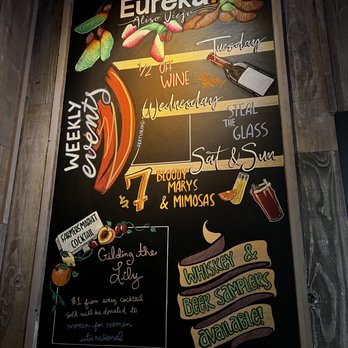 Eureka!
Aliso Viejo
WEEKLY
events
Tuesday
1/2 OFF
WINE
Wednesday
FEATURING
STEAL
THE
GLASS
Sat & Sun
$7 BLOODY
MARYS
& MIMOSAS
FARMERS MARKET
COCKTAIL
Gilding the
Lily
$1 from every cocktail
sold will be donated to
women for women
international
WHISKEY &
BEER SAMPLERS
available!